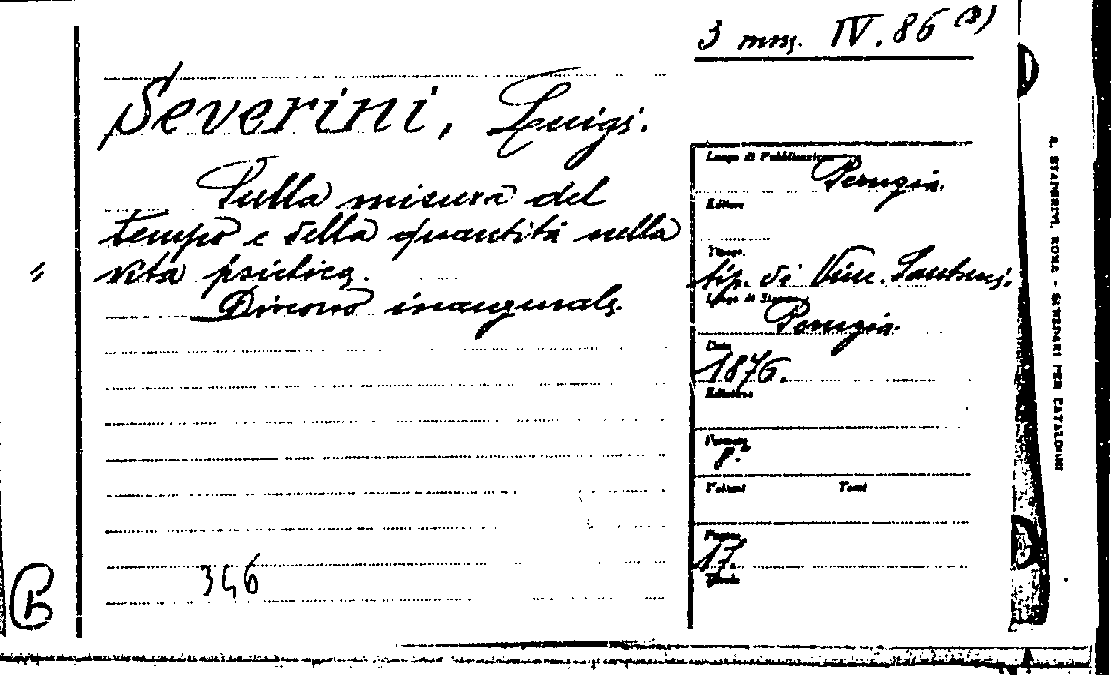 3 misc. IV. 86 (3)
Severini, Luigi.
Sulla misura del
tempo e della quantità nella
vita psichica.
Discorso inaugurale.
346
B
Luogo di Pubblicazione
Perugia.
Editore
tip. di Vinc. Santucci.
Luogo di Stampa
Perugia.
Data
1876.
Edizione
Formato
8°
Volumi Tomi
Pagine
17.
Tavole
A. STADERINI, ROMA - SCHEDARI PER CATALOGHI